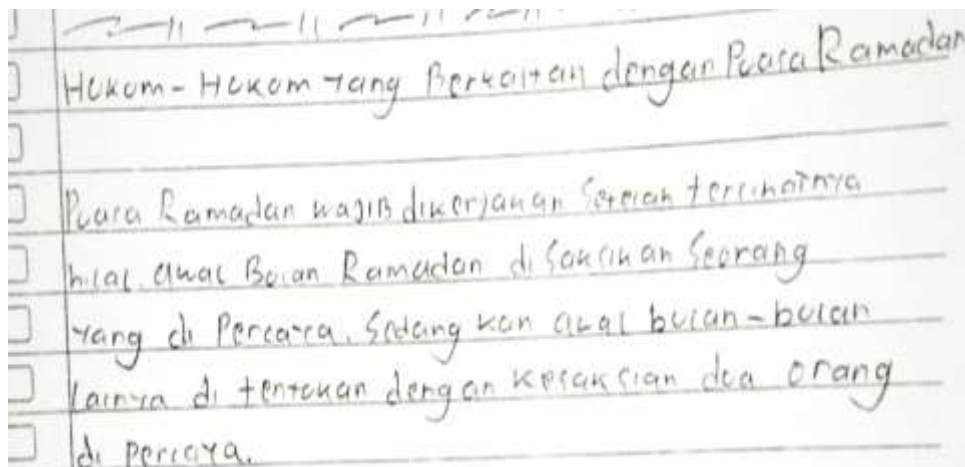 Hukum-Hukum Yang Berkaitan dengan Puasa Ramadan
Puasa Ramadan wajib dikerjakan Setelah terlihatnya
hilal. awal Bulan Ramadan di Saksikan Seorang
Yang di Percaya. Sedang kan awal bulan-bulan
Lainya di tentukan dengan kesaksian dua orang
di percaya.